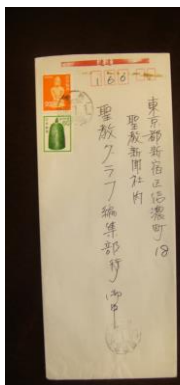 160
東京都新宿区信濃町18
聖教新聞社内
聖教グラフ編集部御中